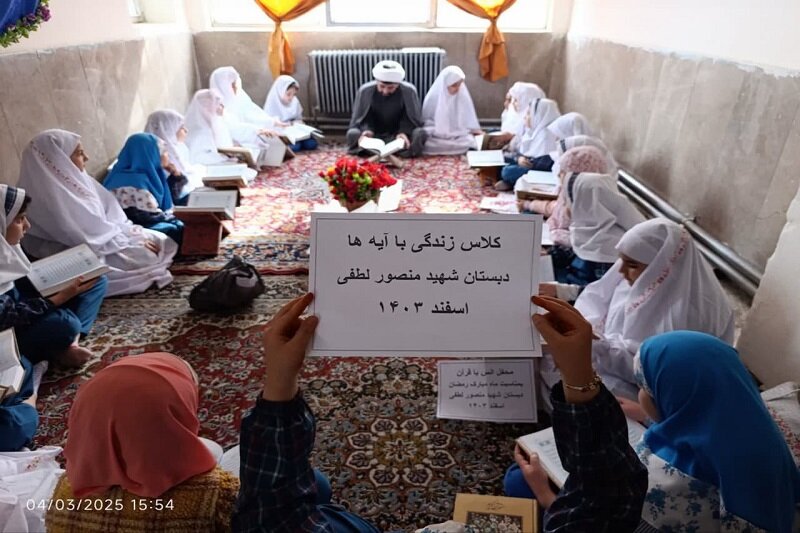 کلاس زندگی با آیه ها
دبستان شهید منصور لطفی
اسفند ۱۴۰۳
محفل انس با قرآن
بمناسبت ماه مبارک رمضان
دبستان شهید منصور لطفی
اسفند ۱۴۰۳
04/03/2025 15:54